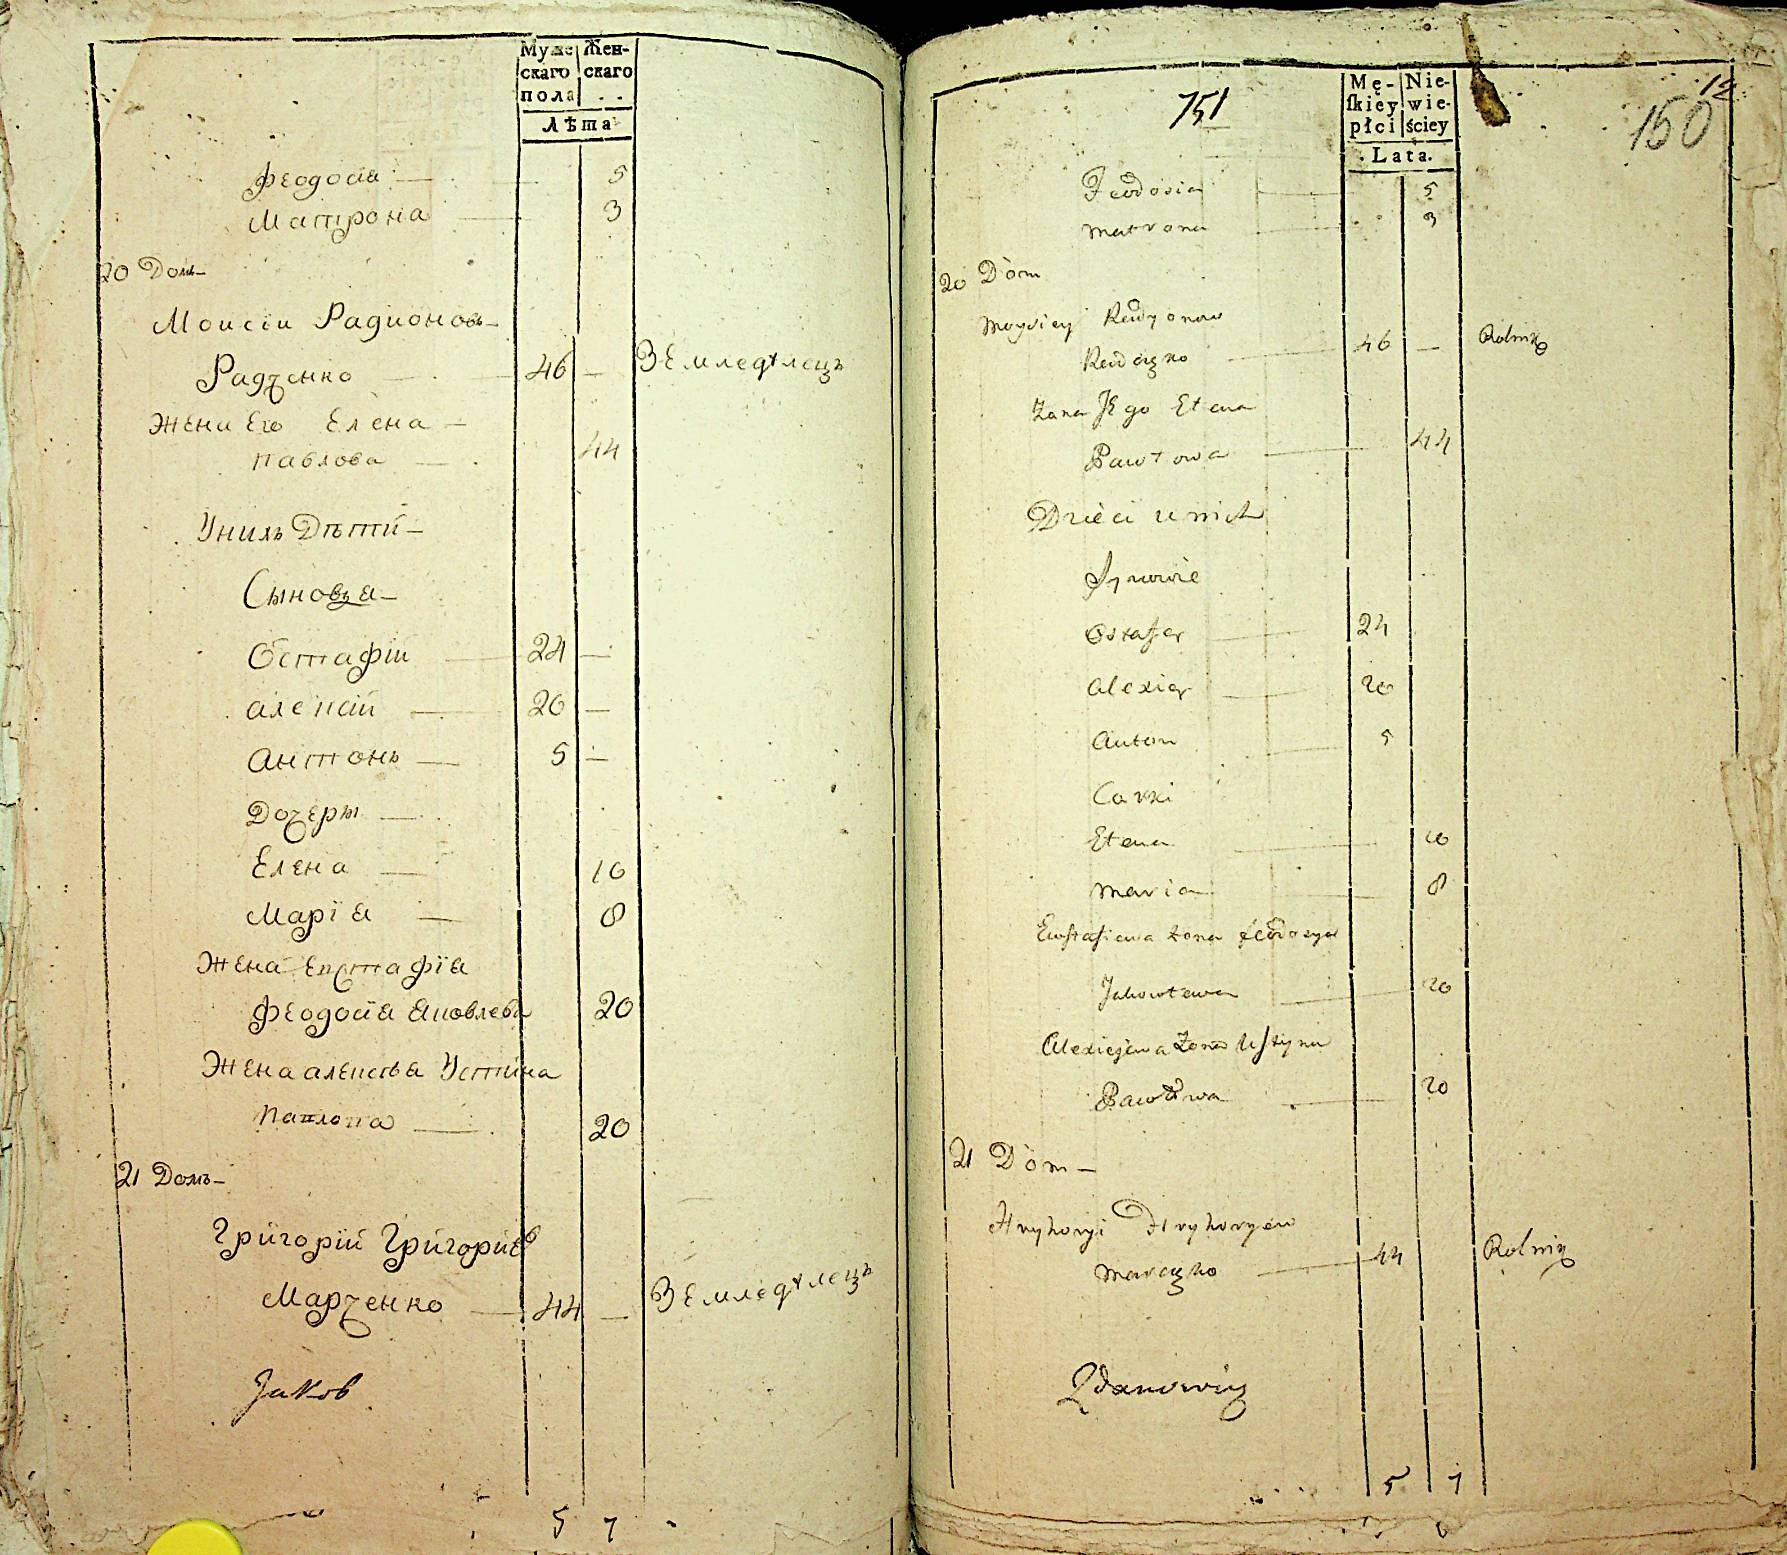 Муже Жен-
скаго скаго
пола . .
Лѣта
Феодосіа — 5
Матрона — 3
20 Домъ
Моисіи Радионовъ
Радченко — 46 — Земледѣлецъ
Жена Его Елена —
Павлова — 44
У нихъ Дѣти —
Сыновъя —
Остафій — 24 —
Алексій — 20 —
Антонъ — 5 —
Дочеры —
Елена — 10
Маріа — 8
Жена Евстафіа
Феодосіа Яковлева 20
Жена Алексѣа Устина
Павлова — 20
21 Домъ —
Григорій Григориевъ
Марченко — 44 — Земледѣлецъ
Jakob
5 7
751
12
150
Mę- Nie-
skiey wie-
płci ściey
Lata.
Feodosia — 5
Matrona — 3
20 Dom
Moysiey Radyonow
Radczko — 46 — Rolnik
Zona Jego Elena
Pawłowa — 44
Dzieci u nich
Synowie
Ostafey — 24
Alexiey — 20
Anton — 5
Carki
Elena — 10
Maria — 8
Ewstafiewa żona Feodosya
Jakowlewa — 20
Alexiejewa Zona Ustyna
Pawłowa — 20
21 Dom —
Hryhoryi Hryhoryew
Marczko — 44 Rolnik
Zdanowicz
5 7